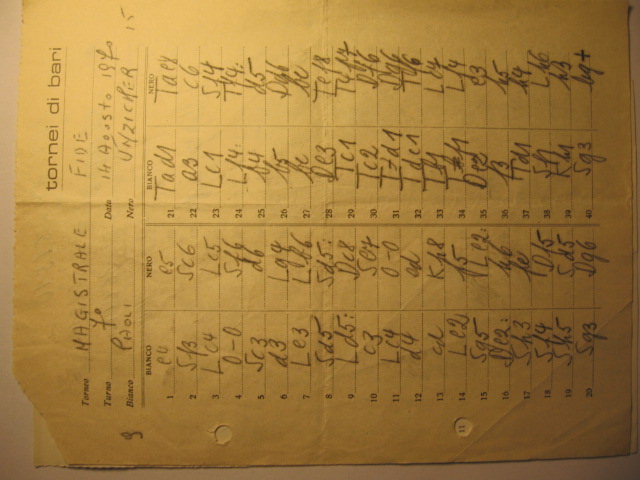 tornei di bari
Torneo MAGISTRALE FIDE
Turno 7o Data 14 Agosto 1970
9 Bianco PAOLI Nero UNZICKER 15
BIANCO NERO BIANCO NERO
1 e4 e5 21 Tad1 Tae8
2 Sf3 Sc6 22 a3 c6
3 Lc4 Lc5 23 Lc1 Sf4
4 0-0 Sf6 24 Lf4: Tf4:
5 Sc3 d6 25 b4 d5
6 d3 Lg4 26 b5 Dg6
7 Le3 Lb6 27 bc bc
8 Sd5 Sd5: 28 De3
9 Ld5: Dc8 29 Tc1
10 c3 Se7 30 Tc2
11 Lc4 0-0 31 Dg6
12 d4 ed 32 Tdc1
13 cd Kh8 33
14 Le2 f5 34 Lf4
15 Sg5 Le2: 35 De2 e3
16 De2: h6 36 f3 h5
17 Sh3 fe 37 Td1 h4
18 Sf4 Df5 38 Sf1 Lh6
19 Sh5 Sd5 39 Kh1 h3
20 Sg3 Dg6 40 Sg3 hg+
11